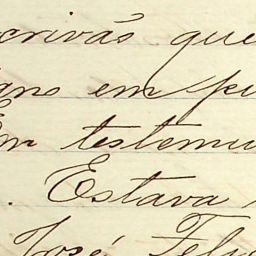 crivão que
ano em pu
Em testemu
. Estava
José Feli